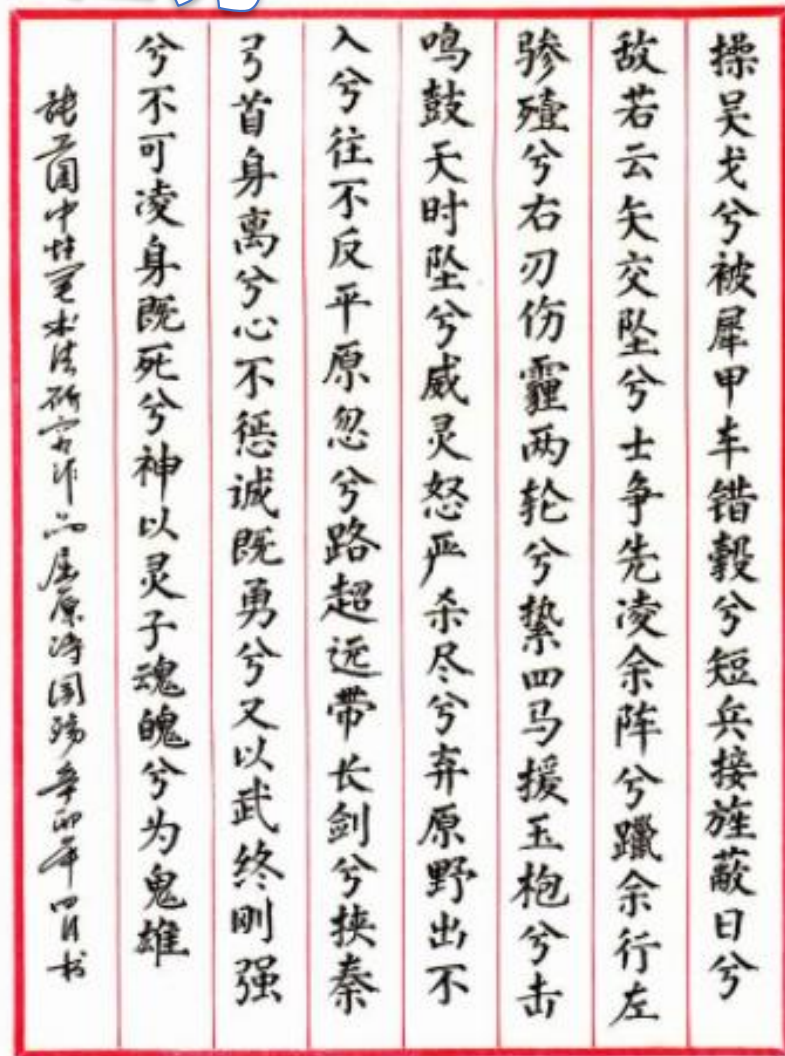 操吴戈兮被犀甲车错毂兮短兵接旌蔽日兮
敌若云矢交坠兮士争先凌余阵兮躐余行左
骖殪兮右刃伤霾两轮兮絷四马援玉枹兮击
鸣鼓天时坠兮威灵怒严杀尽兮弃原野出不
入兮往不反平原忽兮路超远带长剑兮挟秦
弓首身离兮心不惩诚既勇兮又以武终刚强
兮不可凌身既死兮神以灵子魂魄兮为鬼雄
中性笔书法研究作品屈原诗国殇辛卯年四月书